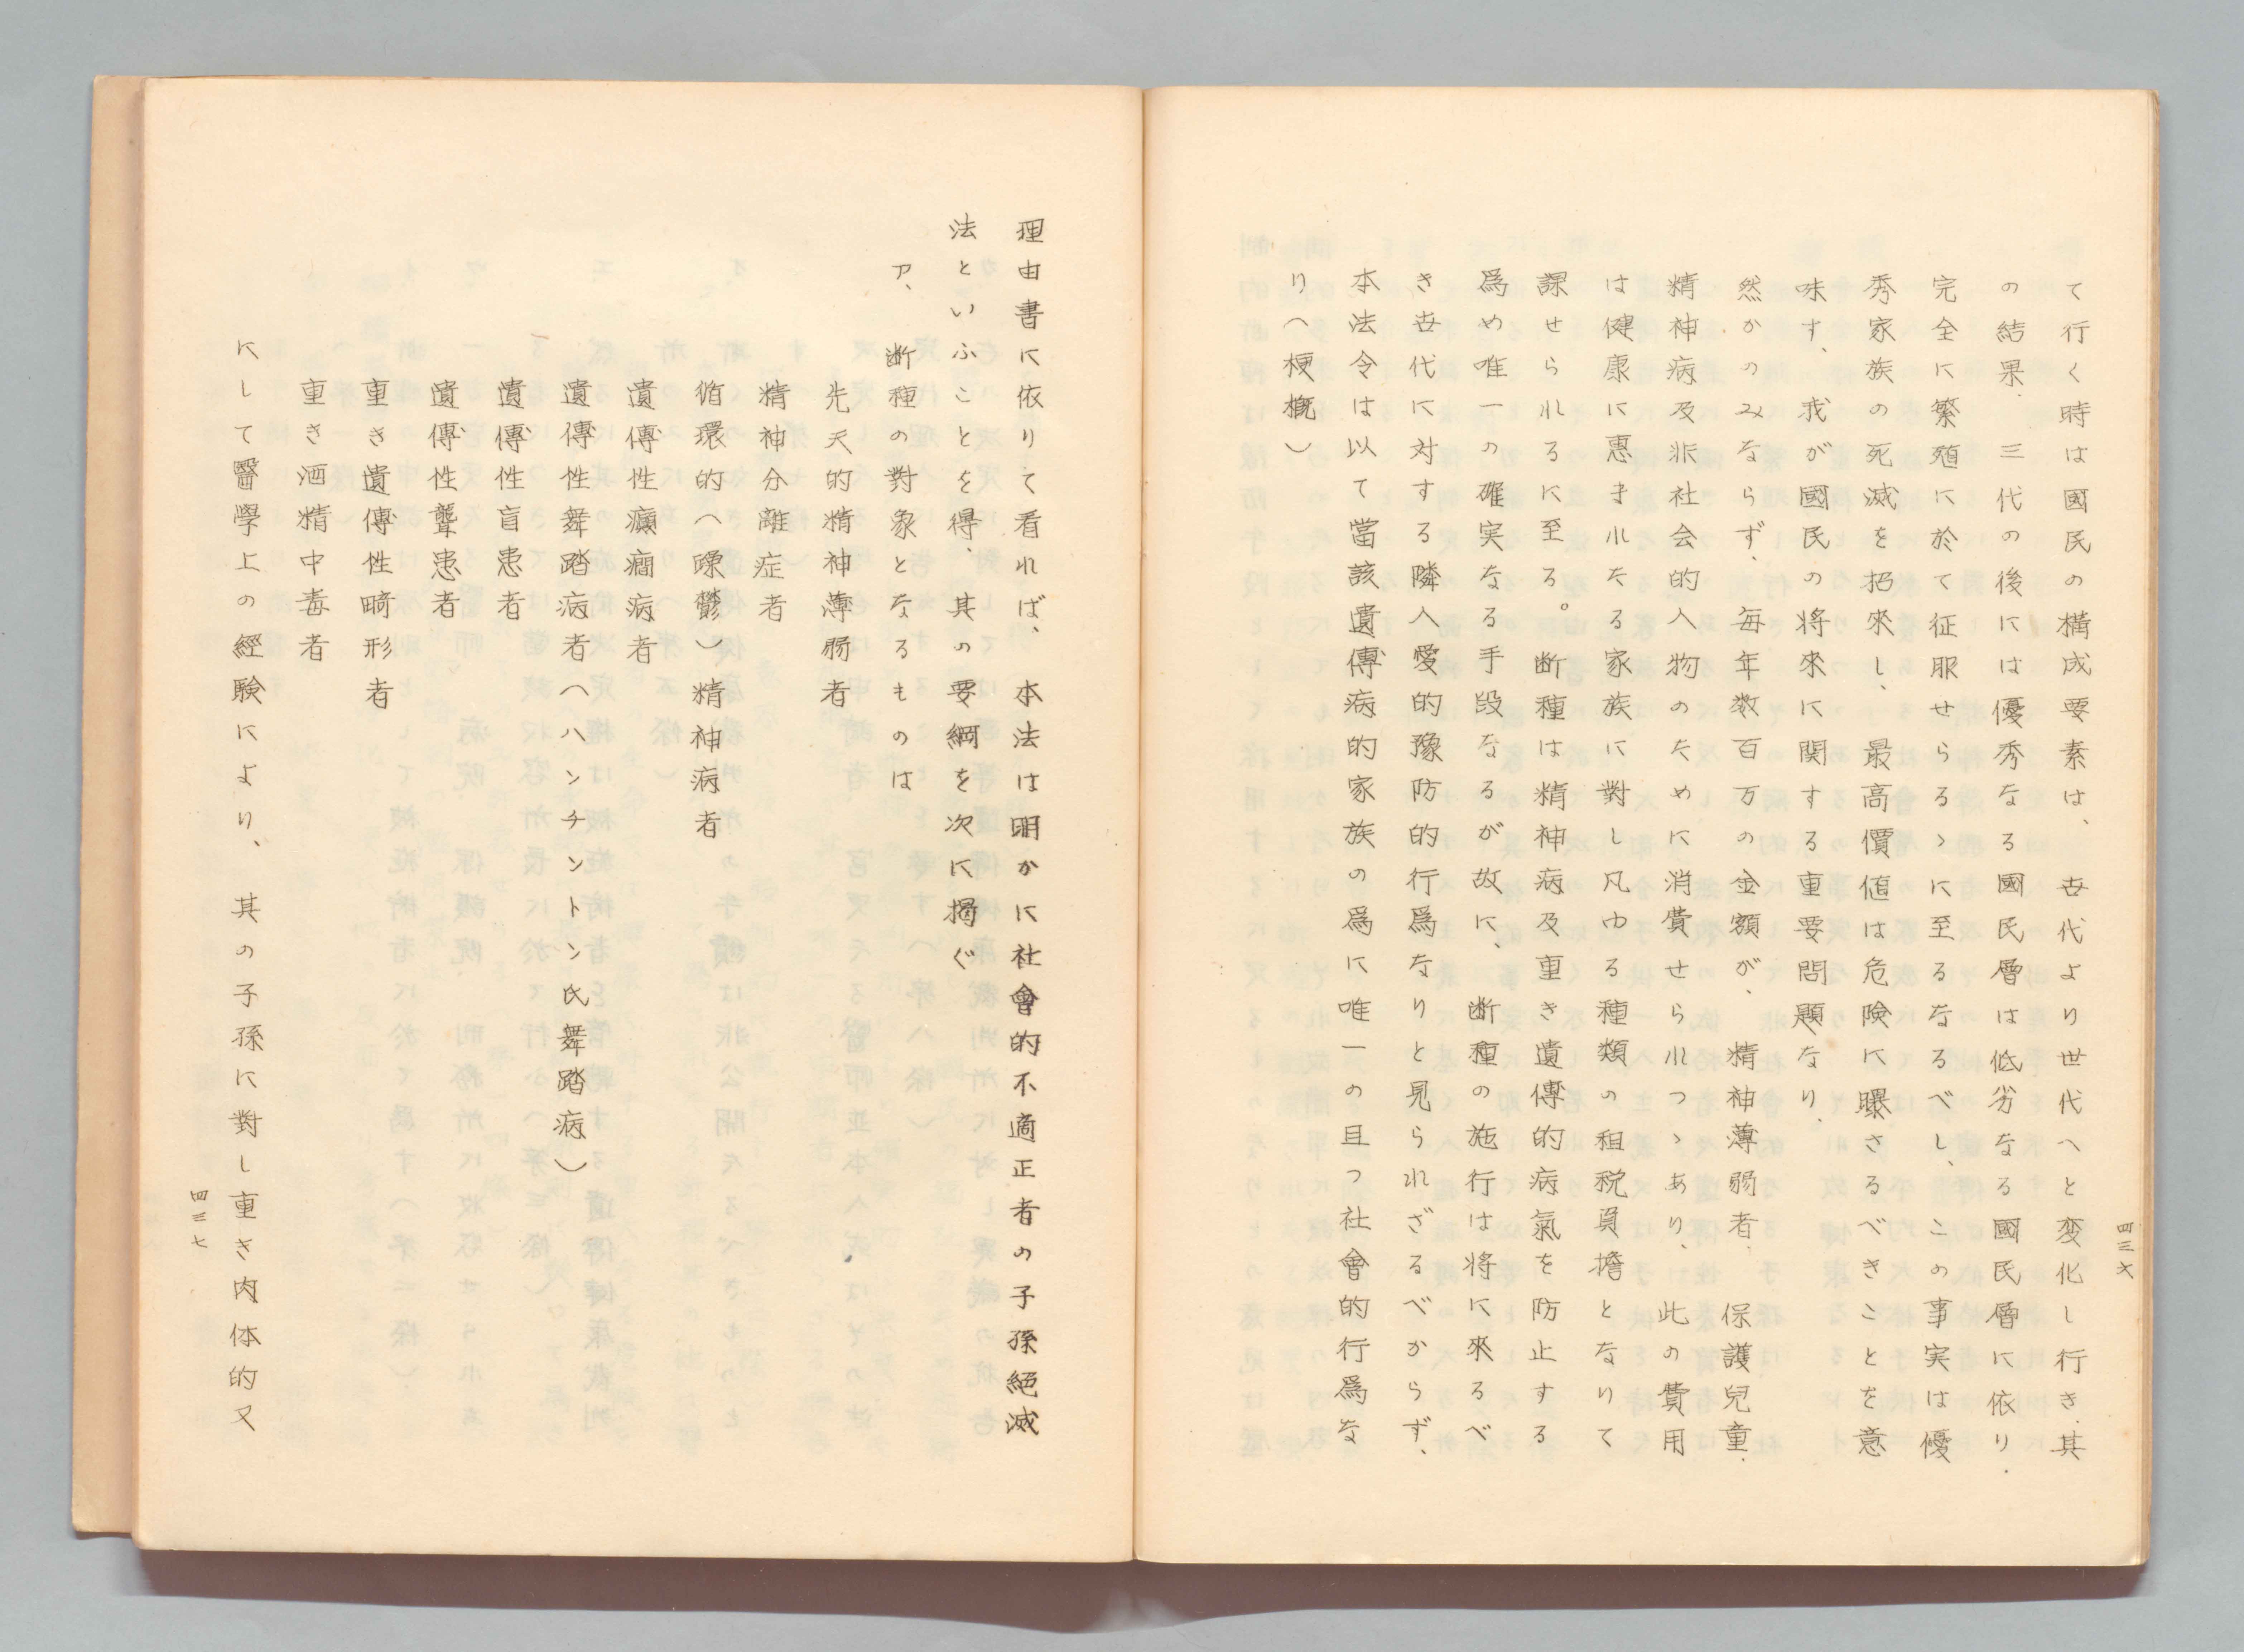 四三六
て行く時は國民の構成要素は、世代より世代へと変化し行き、其
の結果、三代の後には優秀なる國民層は低劣なる國民層に依り、
完全に繁殖に於て征服せらるゝに至るなるべし、この事実は優
秀家族の死滅を招來し、最高價値は危険に曝さるべきことを意
味す、我が國民の将來に関する重要問題なり、
然かのみならず、毎年数百万の金額が、精神薄弱者、保護兒童、
精神病及非社会的人物のために消費せられつゝあり、此の費用
は健康に惠まれたる家族に對し凡ゆる種類の租税負擔となりて
課せられるに至る。断種は精神病及重き遺傳的病氣を防止する
爲め唯一の確実なる手段なるが故に、断種の施行は将に來るべ
き世代に対する隣人愛的豫防的行爲なりと見られざるべからず、
本法令は以て當該遺傳病的家族の爲に唯一の且つ社會的行爲な
り（梗概）
理由書に依りて看れば、本法は明かに社會的不適正者の子孫絕滅
法といふことを得、其の要綱を次に揭ぐ
ア、断種の對象となるものは
先天的精神薄弱者
精神分離症者
循環的（躁鬱）精神病者
遺傳性癲癇病者
遺傳性舞踏病者（ハンチントン氏舞踏病）
遺傳性盲患者
遺傳性聾患者
重き遺傳性畸形者
重き酒精中毒者
にして醫學上の經験により、其の子孫に對し重き肉体的又
四三七